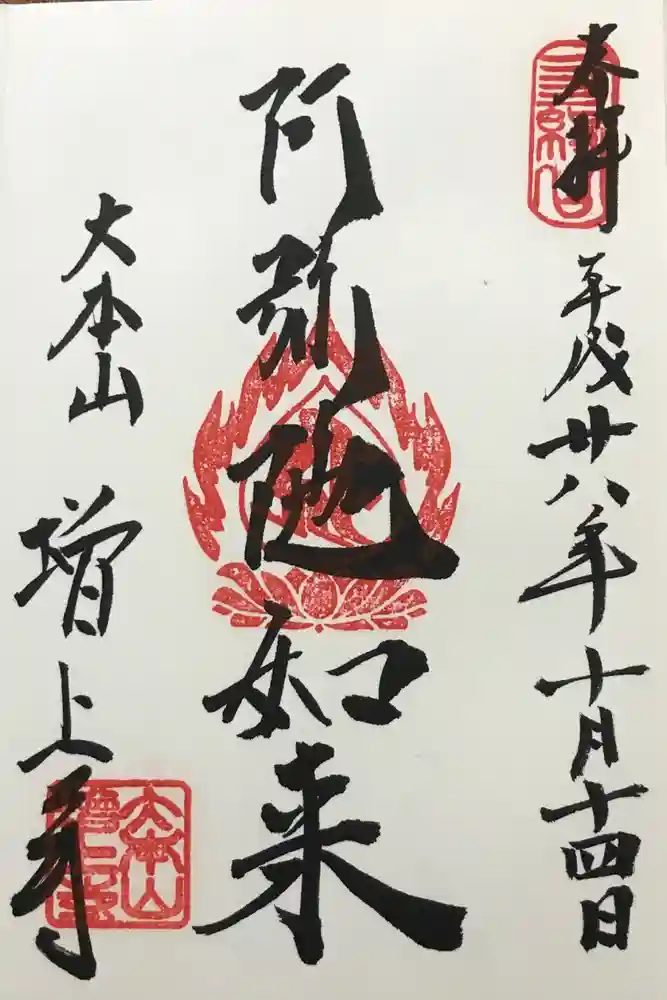 奉拝
平成廿八年十月十四日
阿弥陀如来
大本山
増上寺
三縁山
大本山増上寺